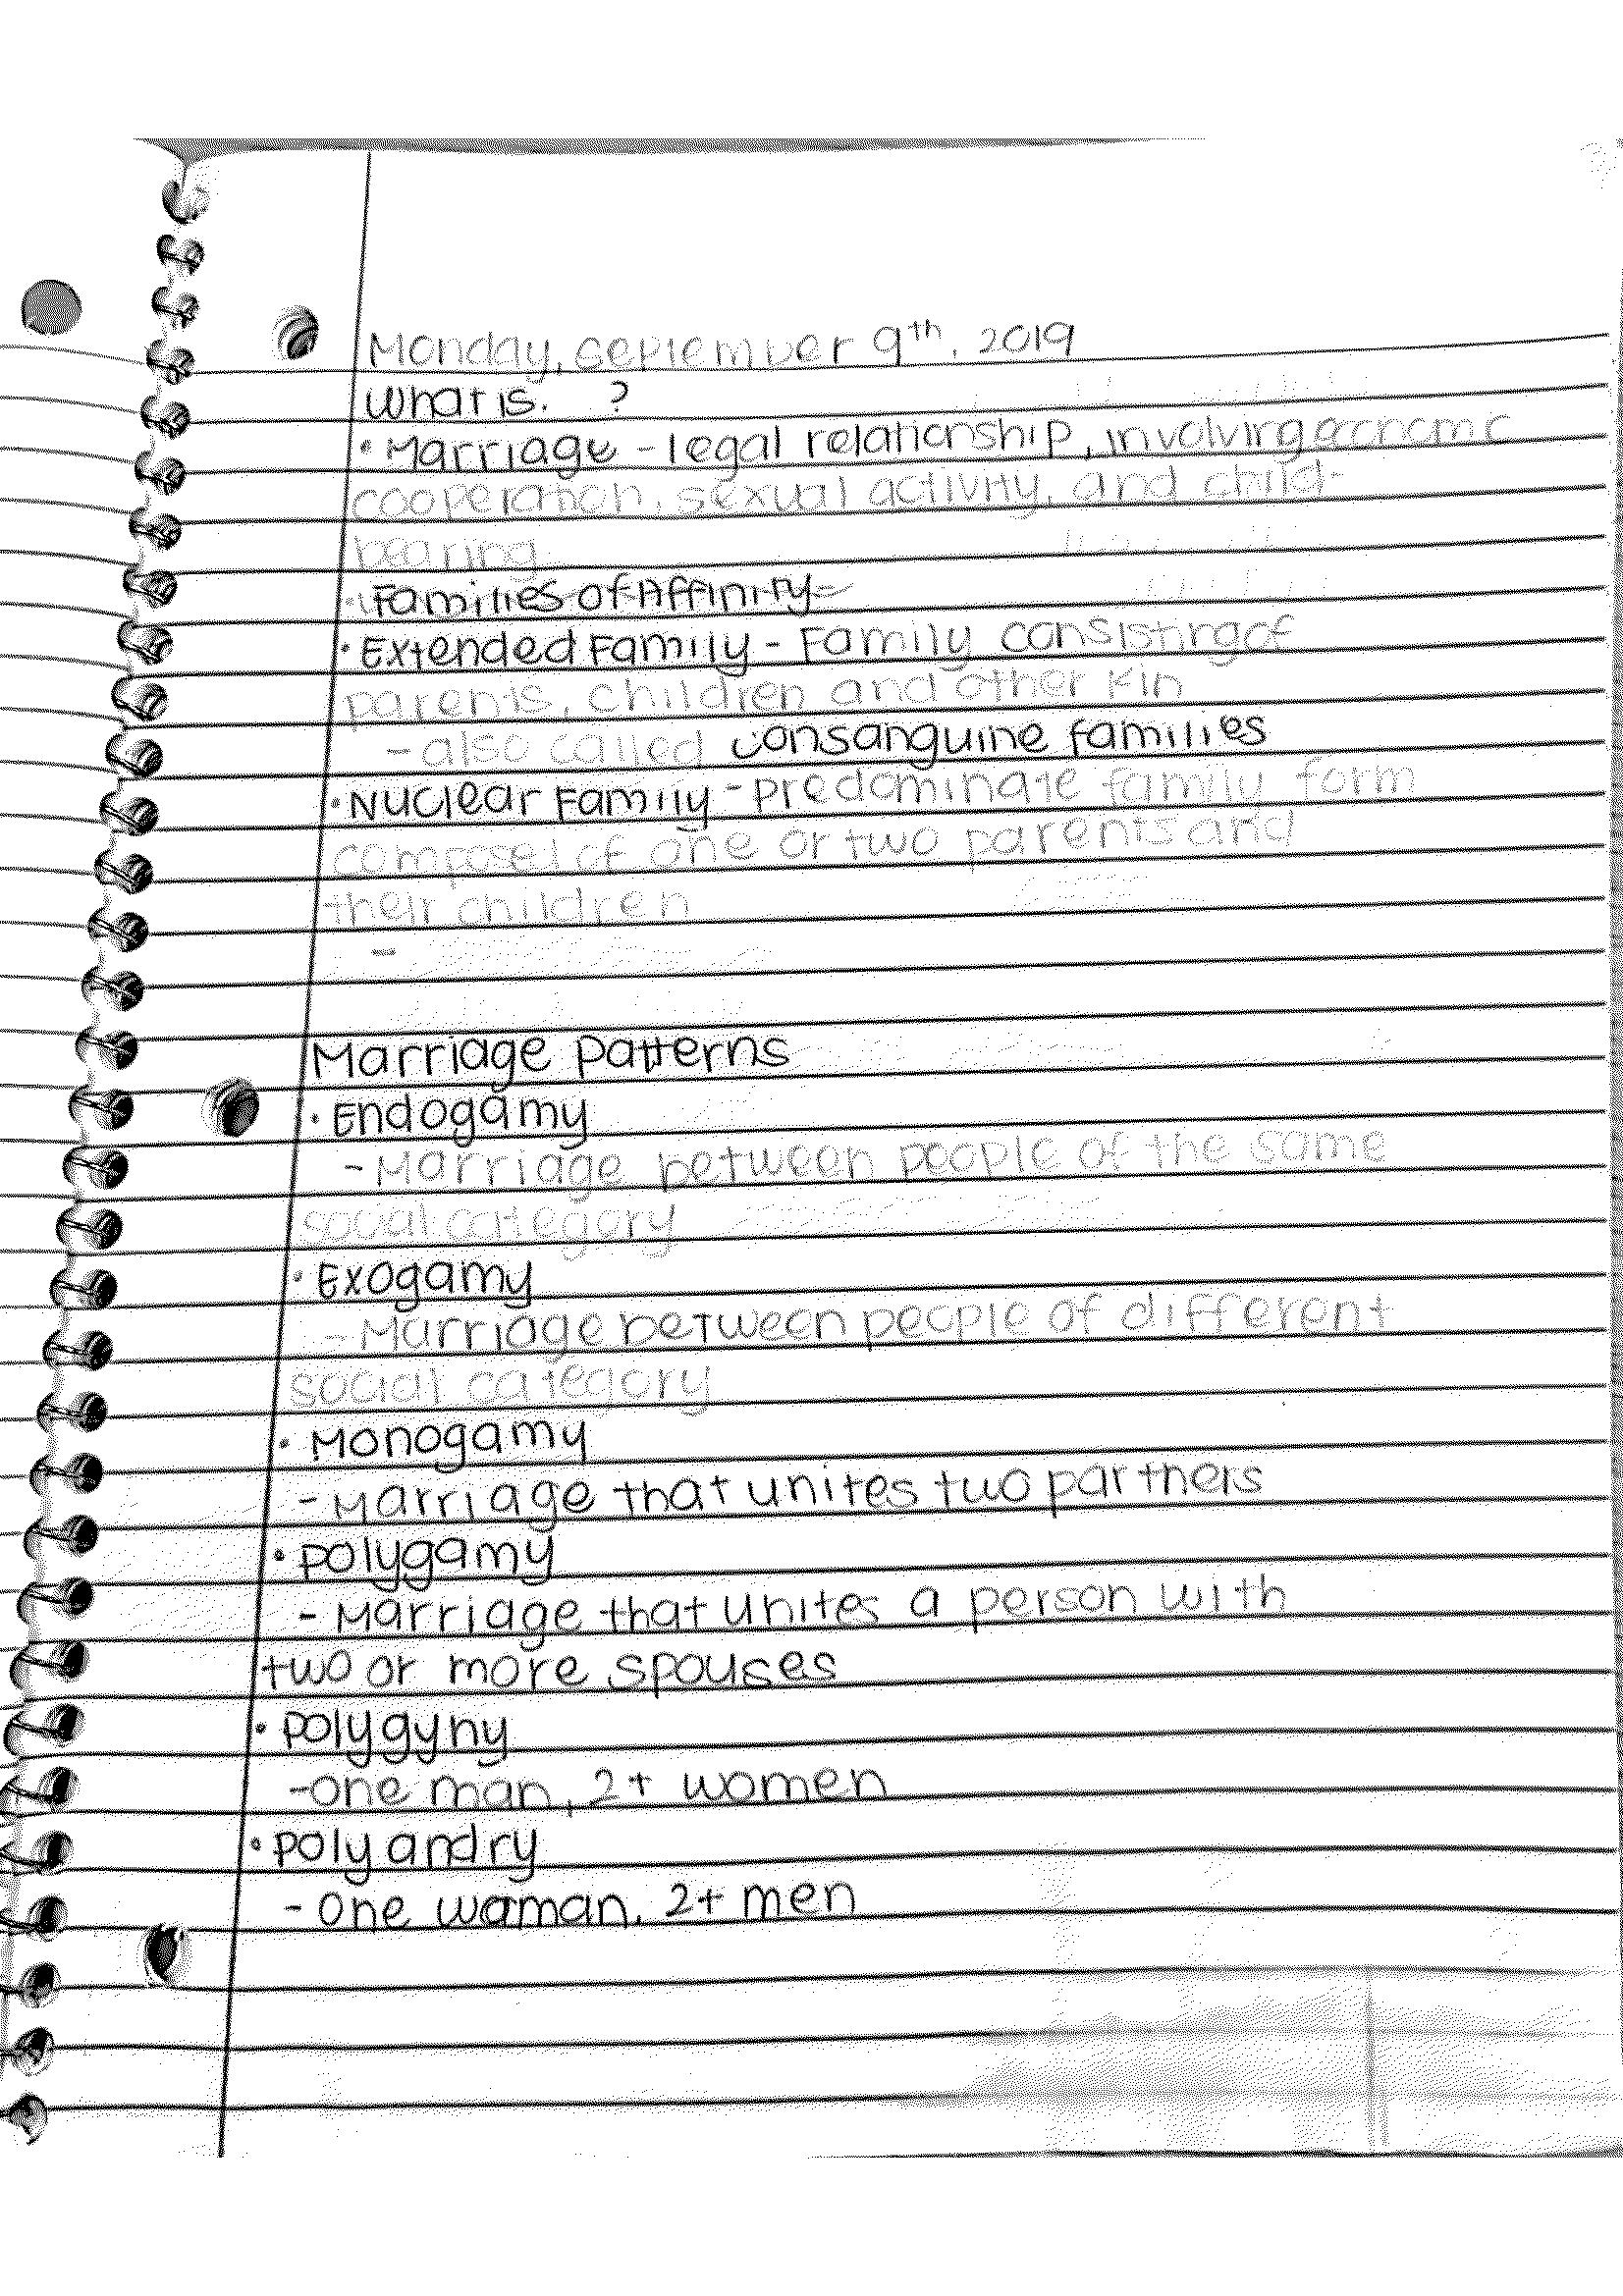 Monday, September 9th, 2019
What is. ?
• Marriage - legal relationship, involving economic
cooperation, sexual activity, and child-
bearing
• Families of Affinity-
• Extended Family - Family consisting of
parents, children and other kin
- also called consanguine families
• Nuclear Family - predominate family form
composed of one or two parents and
their children
-
Marriage Patterns
• Endogamy
- Marriage between people of the same
social category
• Exogamy
- Marriage between people of different
social category
• Monogamy
- Marriage that unites two partners
• Polygamy
- Marriage that unites a person with
two or more spouses
• Polygyny
-one man, 2+ women
• Polyandry
- One woman, 2+ men